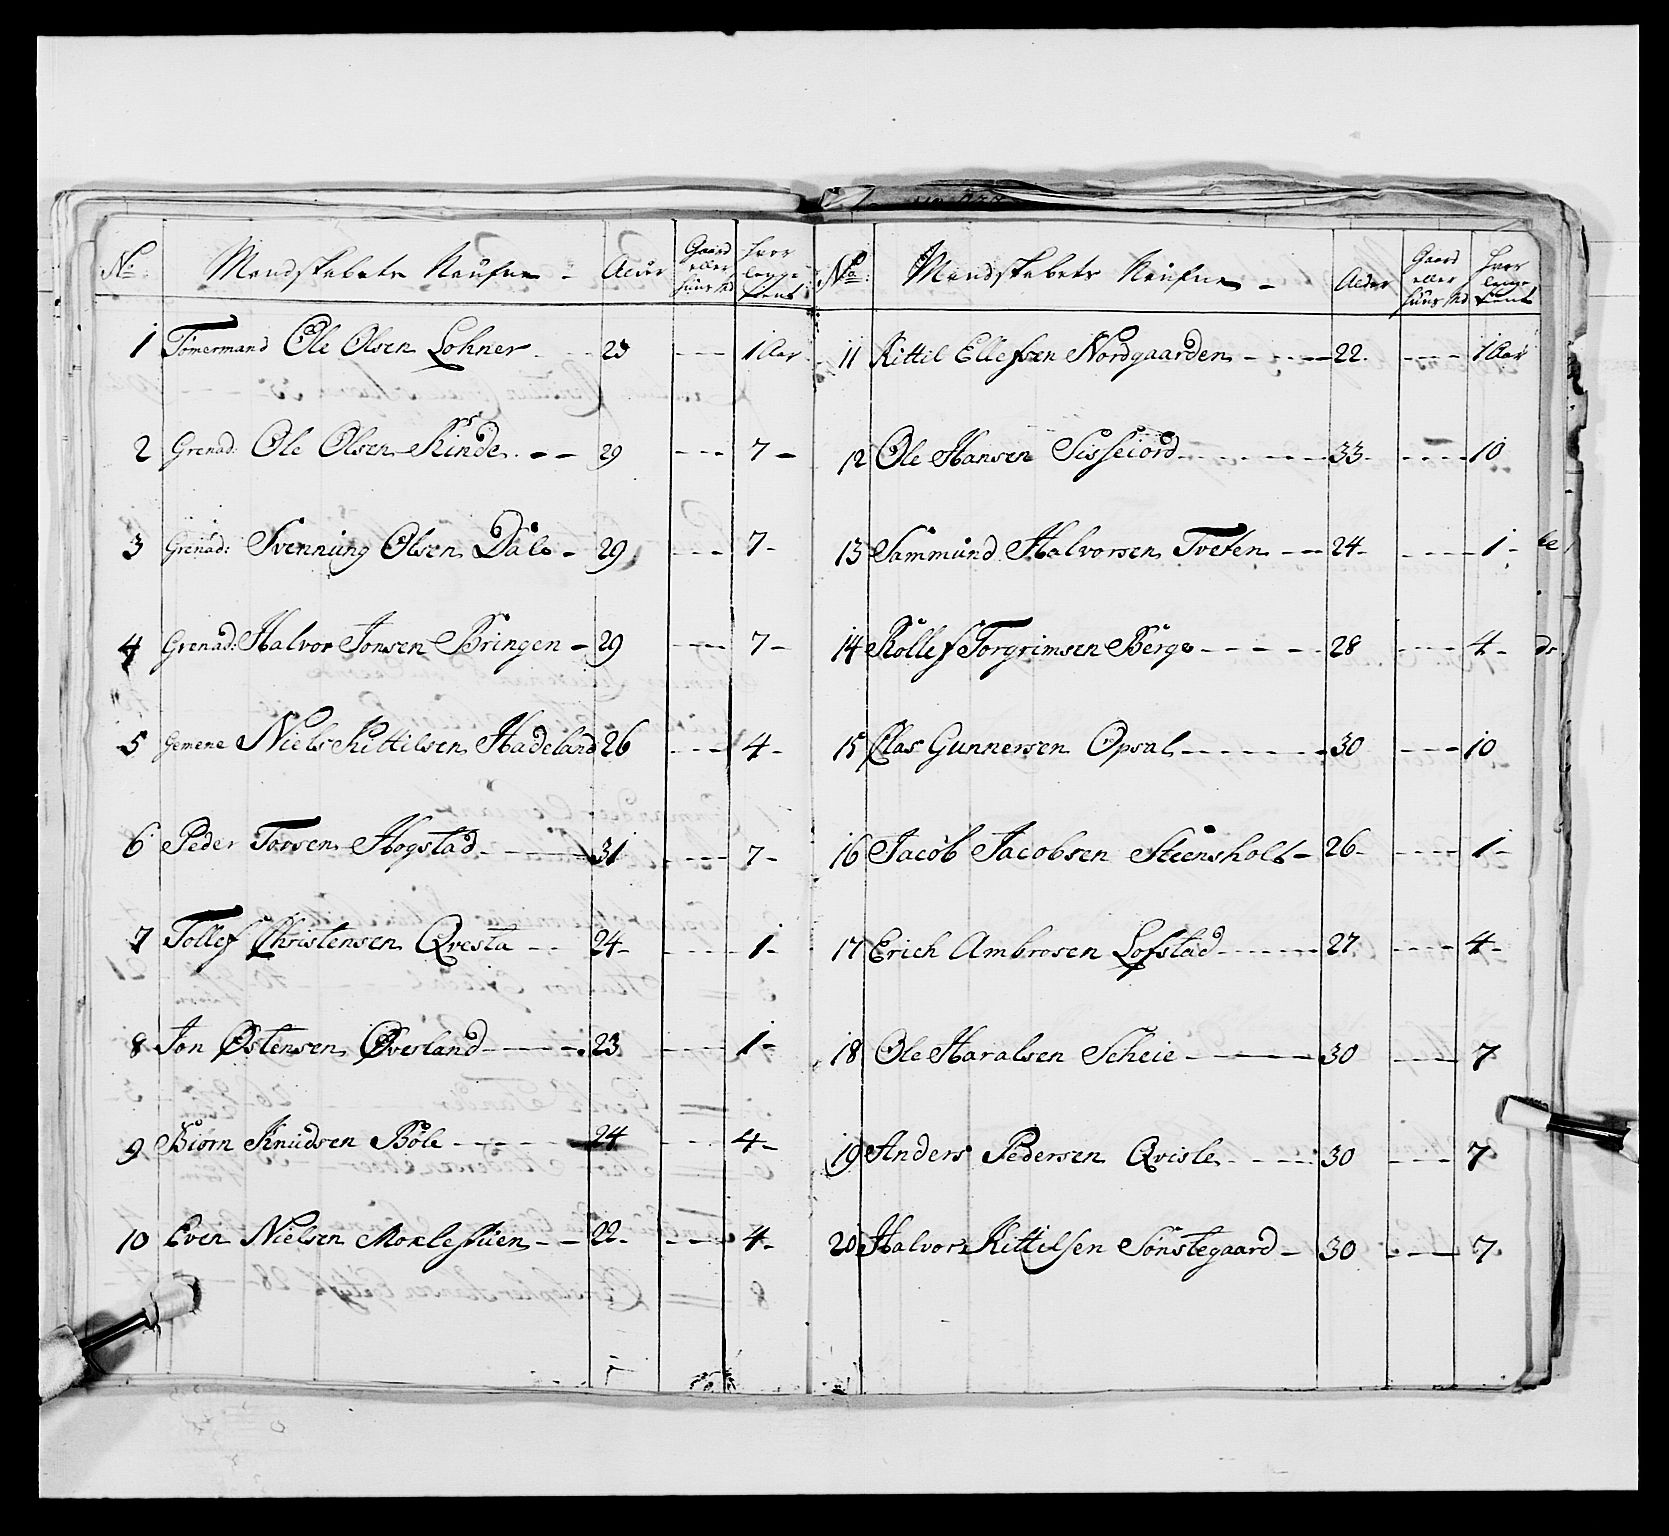 No: Mandskabets Naufne - Alder Gaard eller Huus Md Hvor lenge tient
1 Tømermand Ole Olsen Lohner 23 --- 1 Aar
2 Grenad: Ole Olsen Rinde 29 --- 7 -
3 Grenad: Svennung Olsen Dale - 29 --- 7 -
4 Grenad: Halvor Jonsen Bringen - 29 --- 7 -
5 Gemene Niels Kittilsen Hadeland 26 --- 4 -
6 Peder Torsen Hogstad 31 --- 7 -
7 Tollef Christensen Qvesta 24 - --- 1 -
8 Jon Østensen Øverland 23 --- 1 -
9 Biørn Knudsen Bøle 24 --- 4 -
10 Even Nielsen Moxlestuen 22 - --- 4 -
No: Mandskabets Naufne - Alder Gaard eller Huus Md Hvor lenge tient
11 Kittil Ellefsen Nordgaarden 22 --- 1 Aar
12 Ole Hansen Sisseiord 33 - --- 10
13 Sammund Halvorsen Tveten 24 - --- 1 -
14 Rollef Torgrimsen Berge 28 --- 4 -
15 Clas Gunnersen Opsal 30 --- 10
16 Jacob Jacobsen Steensholt - 26 - --- 1 -
17 Erich Ambrosen Lofstad 27 --- 4 -
18 Ole Haralsen Scheie 30 --- 7
19 Anders Pedersen Qvisle 30 --- 7
20 Halvor Kittilsen Sønstegaard - 30 --- 7